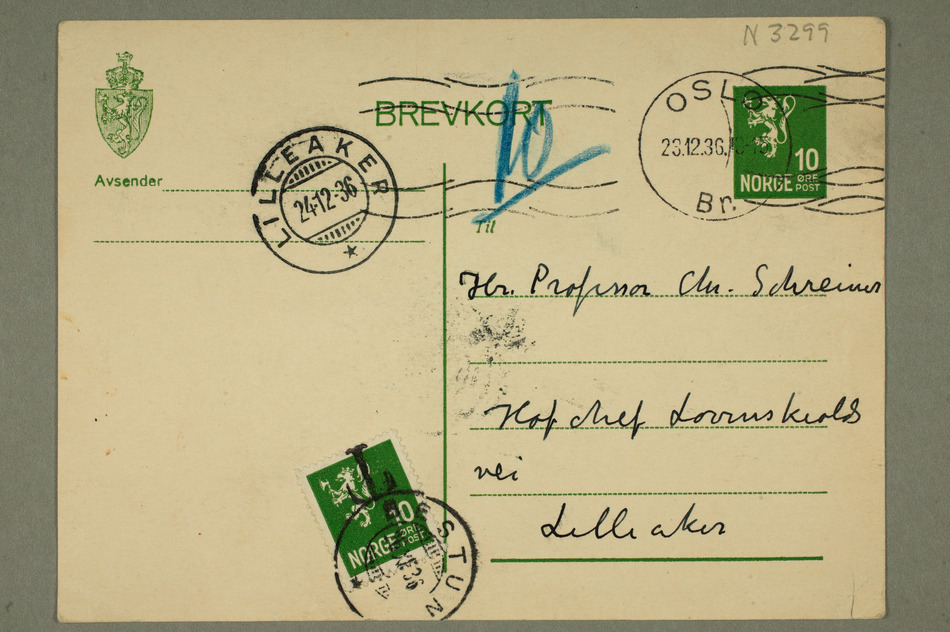 N 3299
BREVKORT
10
OSLO
23.12.36.
Br.
10
NORGE ØRE POST
LILLEAKER
24-12-36
Avsender
Til
Hr. Professor Chr. Schreiner
Hofchef Løvenskiolds
vei
Lilleaker
T
10
NORGE ØRE POST
BESTUN
36